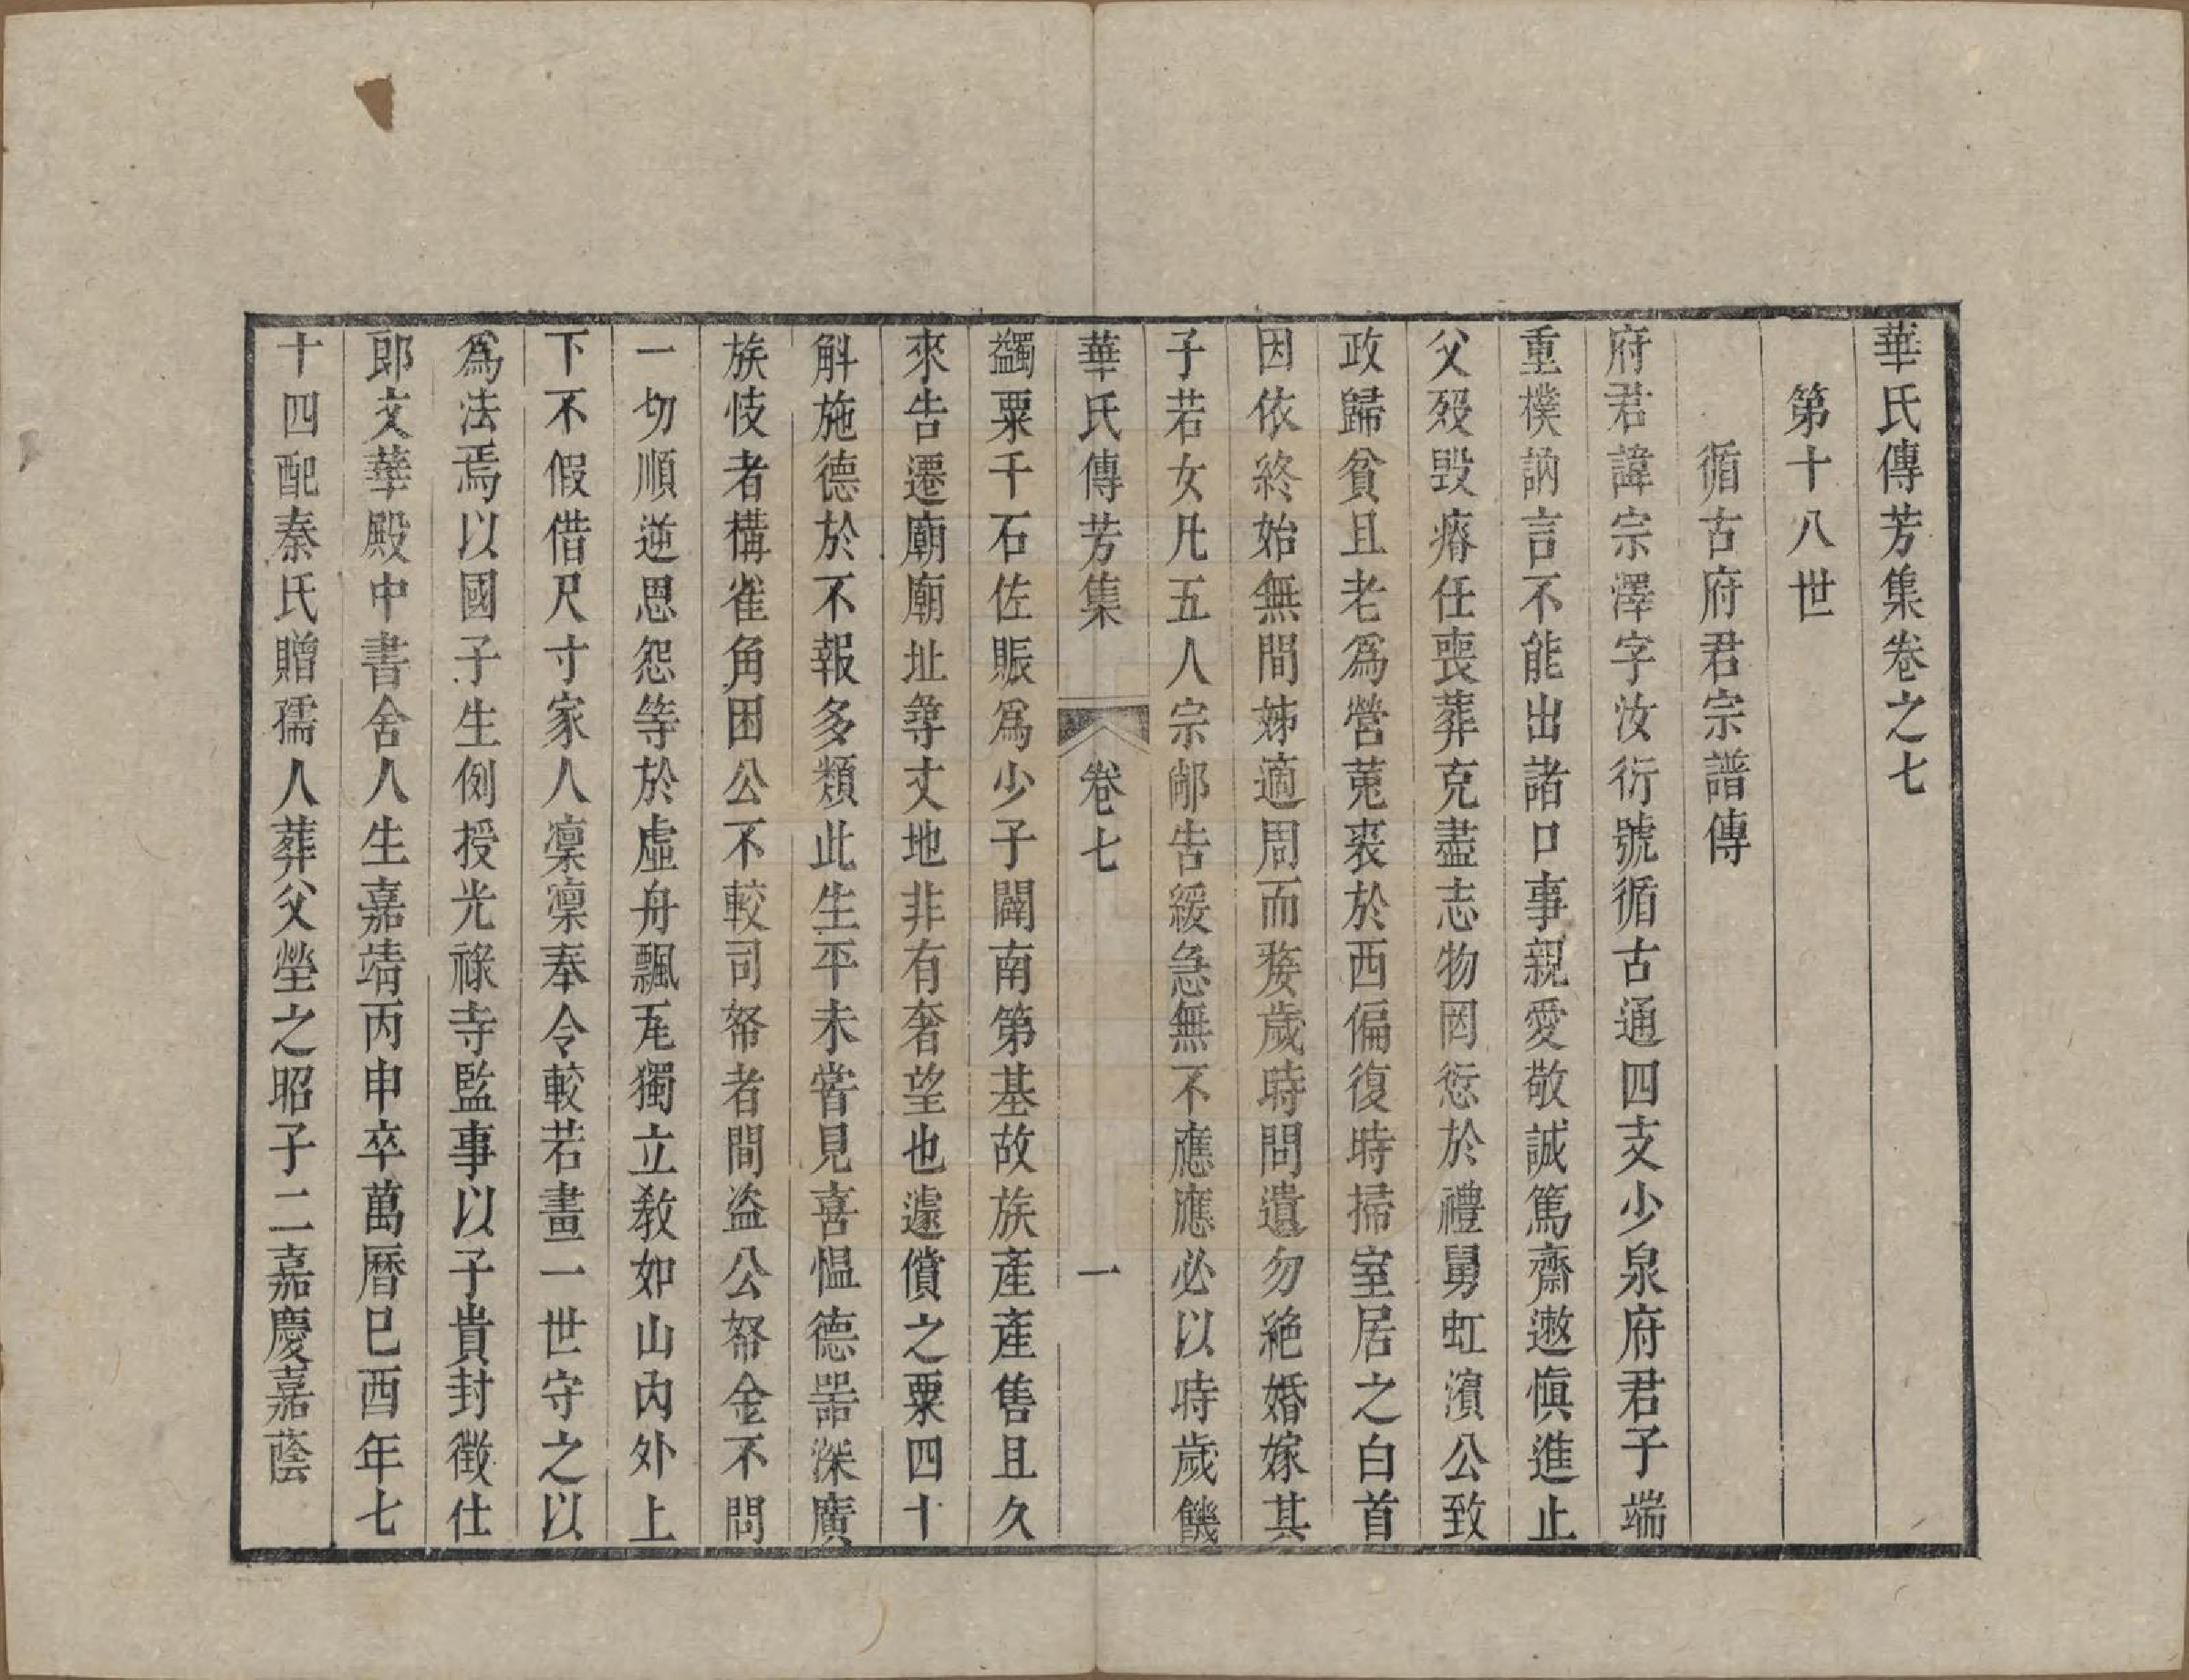 華氏傳芳集卷之七
第十八世
循古府君宗譜傳
府君諱宗澤字汝衍號循古通四支少泉府君子端
重樸訥言不能出諸口事親愛敬誠篤齋遬慎進止
父歿毀瘠任喪葬克盡志物罔愆於禮舅虹濱公致
政歸貧且老爲營菟裘於西偏復時掃室居之白首
因依終始無間姊適周而嫠歲時問遺勿絶婚嫁其
子若女凡五人宗鄰告緩急無不應應必以時歲饑
華氏傳芳集
卷七
一
蠲粟千石佐賑爲少子闢南第基故族產產售且久
來告遷廟廟址尋丈地非有奢望也遽償之粟四十
斛施德於不報多類此生平未嘗見喜愠德器深廣
族忮者構雀角困公不較司帑者間盜公帑金不問
一切順逆恩怨等於虛舟飄瓦獨立教如山內外上
下不假借尺寸家人凛凛奉令較若畫一世守之以
爲法焉以國子生例授光祿寺監事以子貴封徵仕
郎文華殿中書舍人生嘉靖丙申卒萬曆巳酉年七
十四配秦氏贈孺人葬父塋之昭子二嘉慶嘉蔭